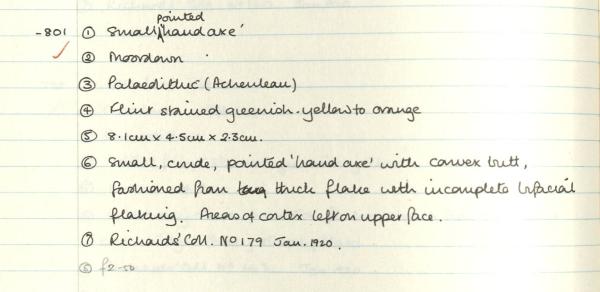 pointed
-801 ① Small ^ 'hand axe'
② Moordown
③ Palaeolithic (Acheulean)
④ Flint stained greenish-yellow to orange
⑤ 8.1cm x 4.5cm x 2.3cm.
⑥ Small, crude, pointed 'hand axe' with convex butt,
fashioned from thick flake with incomplete bifacial
flaking. Areas of cortex left on upper face.
⑦ Richards' Coll. No 179 Jan. 1920.
⑧ £2-50